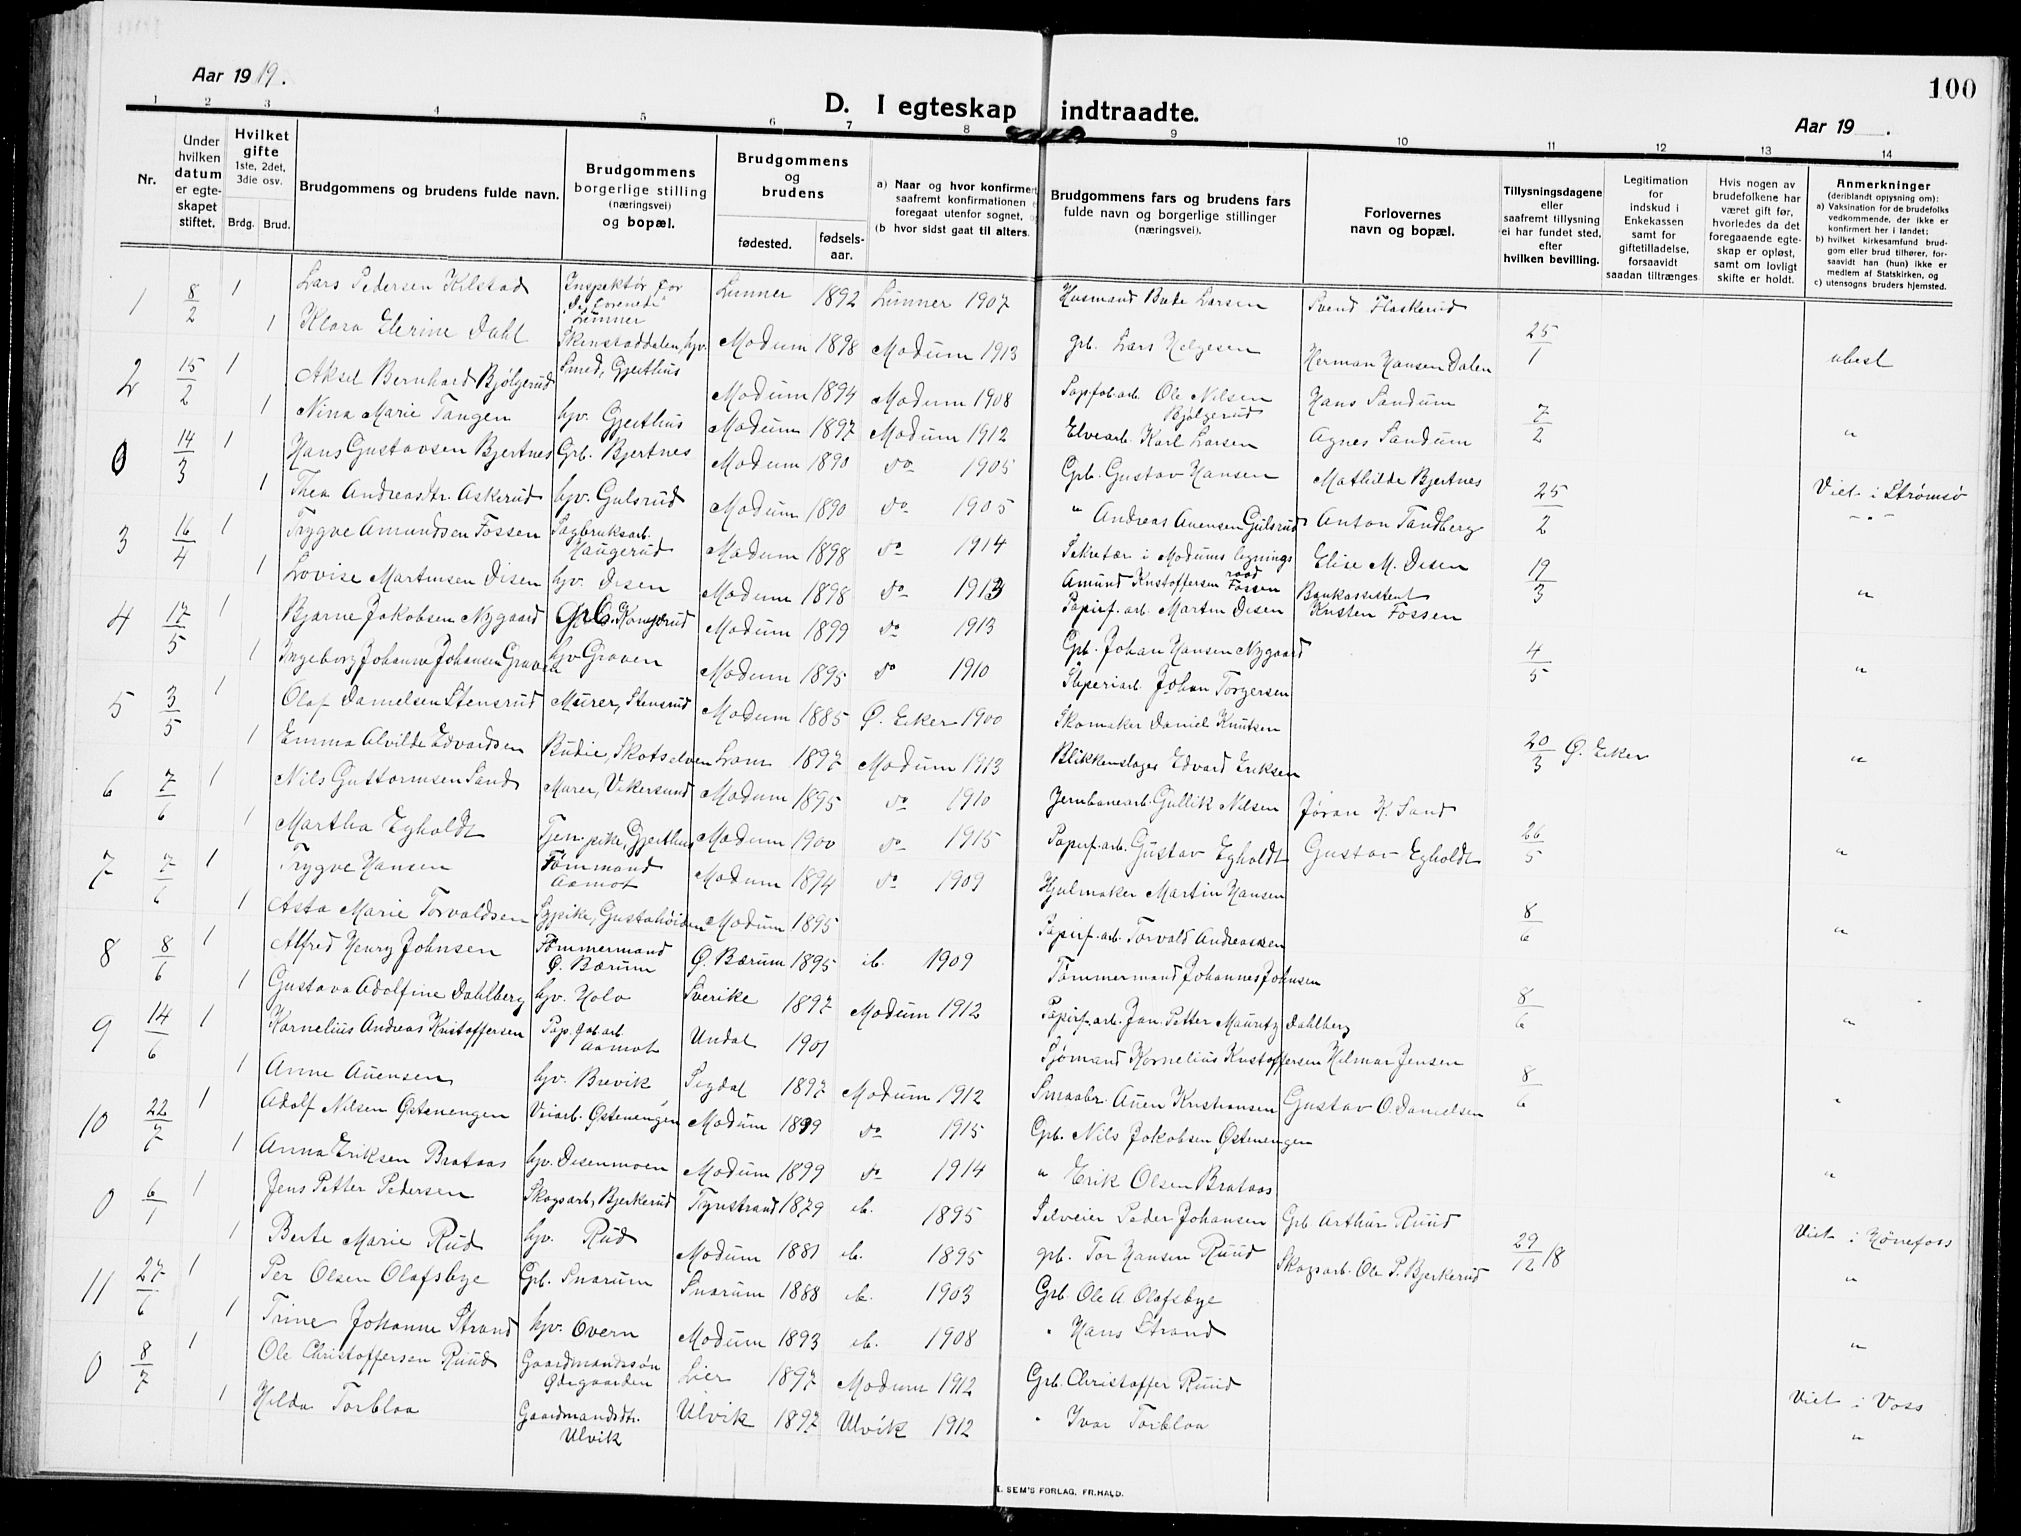 Aar 1919.
D. I egteskap indtraadte.
Aar 19 .
100
1 2 3 4 5 6 7 8 9 10 11 12 13 14
Nr.
Under hvilken datum er egteskapet stiftet.
Hvilket gifte 1ste, 2det, 3die osv.
Brdg. Brud.
Brudgommens og brudens fulde navn.
Brudgommens borgerlige stilling (næringsvei) og bopæl.
Brudgommens og brudens
fødested. fødselsaar.
a) Naar og hvor konfirmert saafremt konfirmationen foregaat utenfor sognet,
(b hvor sidst gaat til alters.
Brudgommens fars og brudens fars fulde navn og borgerlige stillinger (næringsvei).
Forlovernes navn og bopæl.
Tillysningsdagene eller saafremt tillysning ei har fundet sted, efter hvilken bevilling.
Legitimation for indskud i Enkekassen samt for giftetilladelse, forsaavidt saadan tiltrænges
Hvis nogen av brudefolkene har været gift før, hvorledes da det foregaaende egteskap er opløst, samt om lovligt skifte er holdt.
Anmerkninger (deriblandt oplysning om): a) Vaksination for de brudefolks vedkommende, der ikke er konfirmert her i landet; b) hvilket kirkesamfund brudgom eller brud tilhører, forsaavidt han (hun) ikke er medlem af Statskirken, og c) utensogns bruders hjemsted.
1 8/2 1 Lars Pedersen Kilstad Inspektør for "De forenede" Lunner Lunner 1892 Lunner 1907 Husmand Larsen Svend Flaskerud
1 Klara Elerine Dahl Skinstaddalen, hjv. Modum 1898 Modum 1913 grb. Lars Helgesen Herman Hansen Dalen 25/1 ubest
2 15/2 1 Aksel Bernhard Bjølgerud Smed, Gjerthus Modum 1894 Modum 1908 Papfab.arb. Ole Nilsen Bjølgerud Hans Sandum
1 Nina Marie Tangen hjv. Gjerthus Modum 1897 Modum 1912 Elvearb. Karl Larsen Agnes Sandum 7/2 "
0 14/3 1 Hans Gustavsen Bjertnes Grb. Bjertnes Modum 1890 do 1905 Grb. Gustav Hansen Mathilde Bjertnes
1 Thea Andreasdtr. Askerud hjv. Gulsrud Modum 1890 do 1905 " Andreas Auensen Gulsrud Anton Tandberg 25/2 Viet i Strømsø - " -
3 16/4 1 Trygve Amundsen Fossen Sagbruksarb. Haugerud Modum 1898 do 1914 Sekretær i Modums ligningsraad Amund Kristoffersen Fossen Elise M. Disen
1 Lovise Martinsen Disen hjv. Disen Modum 1898 do 1913 Papirf.arb. Martin Disen Bankassistent Kristen Fossen 19/3 "
4 17/5 1 Bjarne Jakobsen Nygaard Grb. Kongsrud Modum 1899 do 1913 Grb. Johan Hansen Nygaard
1 Ingeborg Johanne Johansen Graven hjv. Graven Modum 1895 do 1910 Sliperiarb. Johan Torgersen 4/5 "
5 3/5 1 Olaf Danielsen Stensrud Murer, Stensrud Modum 1885 Ø. Eiker 1900 Skomaker Daniel Knutsen
1 Emma Alvilde Edvardsen Budie, Skotselven Lom 1897 Modum 1913 Blikkenslager Edvard Eriksen 20/3 Ø. Eiker "
6 7/6 1 Nils Guttormsen Sand Murer, Vikersund Modum 1895 do 1910 Jernbanearb. Gullik Nilsen Jøran K. Sand
1 Martha Egholdt Tjen.pike, Gjerthus Modum 1900 do 1915 Papirf.arb. Gustav Egholdt Gustav Egholdt 26/5 "
7 7/6 1 Trygve Hansen Tømmand Aamot Modum 1894 do 1909 Hjulmaker Martin Hansen
1 Asta Marie Torvaldsen Sypike, Gustahøiden Modum 1895 Papirf.arb. Torvald Andreassen 8/6 "
8 8/6 1 Alfred Henry Johnsen Tømmermand Ø. Bærum Ø. Bærum 1895 ib. 1909 Tømmermand Johannes Johnsen
1 Gustava Adolfine Dahlberg hjv. Holo Sverike 1897 Modum 1912 Papirf.arb. Jan Petter Mauritz Dahlberg 8/6 "
9 14/6 1 Kornelius Andreas Kristoffersen Pap.fab.arb. Aamot Undal 1901 Sjømand Kornelius Kristoffersen Hilmar Jensen
1 Anne Auensen hjv. Brevik Sigdal 1897 Modum 1912 Smaabr. Auen Kristiansen Gustav O. Danielsen 8/6 "
10 22/7 1 Adolf Nilsen Østenengen Veiarb. Østenengen Modum 1899 do 1915 Grb. Nils Jokobsen Østenengen
1 Anna Eriksen Brataas hjv. Disenmoen Modum 1899 do 1914 " Erik Olsen Brataas "
0 6/1 1 Jens Petter Pedersen Skogsarb, Bjerkerud Tyristrand 1879 ib. 1895 Selveier Peder Johansen Grb Arthur Ruud
1 Berte Marie Rud hjv. Rud Modum 1881 ib. 1895 grb. Tor Hansen Ruud Skogsarb. Ole P. Bjerkerud 29/12 18 Viet i Hønefoss "
11 27/6 1 Per Olsen Olafsbye Grb. Snarum Snarum 1888 ib. 1903 Grb. Ole A Olafsbye
1 Trine Johanne Strand hjv. Overn Modum 1893 ib. 1908 " Hans Strand "
0 8/7 1 Ole Christoffersen Ruud Gaardmandssøn Ødegaarden Lier 1897 Modum 1912 Grb. Christoffer Ruud
1 Hilda Torblaa Gaardmandsdtr. Ulvik Ulvik 1897 Ulvik 1912 " Ivar Torblaa Viet i Voss "
E. SEM'S FORLAG, FR.HALD.